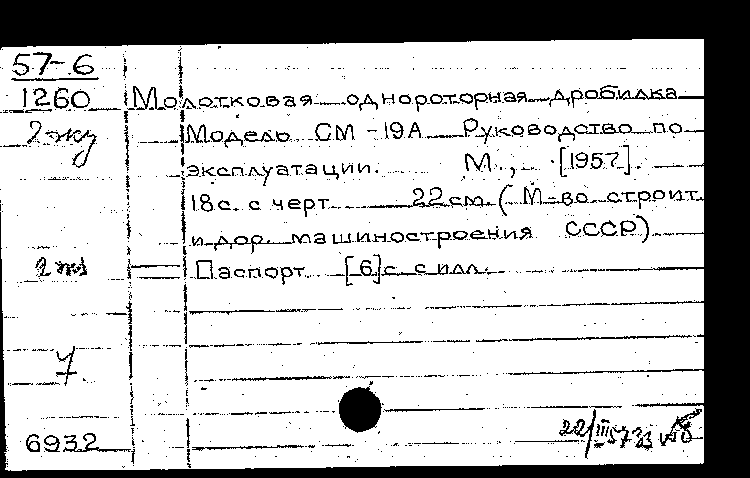 57-6
1260 Молотковая однороторная дробилка
2 экз Модель СМ-19А Руководство по
эксплуатации. М., [1957].
18 с. с черт. 22 см. (М-во строит
и дор. машиностроения СССР)
2 экз Паспорт [6] с. с илл.
7.
6932
22/III 57